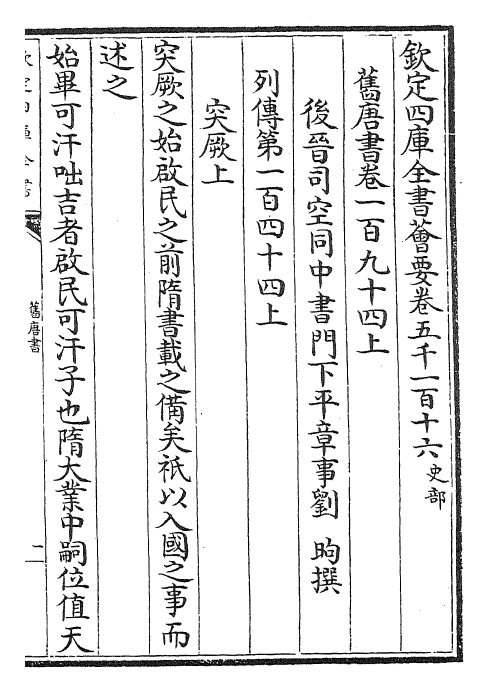 欽定四庫全書薈要卷五千一百十六史部
舊唐書卷一百九十四上
後晉司空同中書門下平章事劉昫撰
列傳第一百四十四上
突厥上
突厥之始啟民之前隋書載之備矣祇以入國之事而
述之
始畢可汗咄吉者啟民可汗子也隋大業中嗣位值天
舊唐書
二